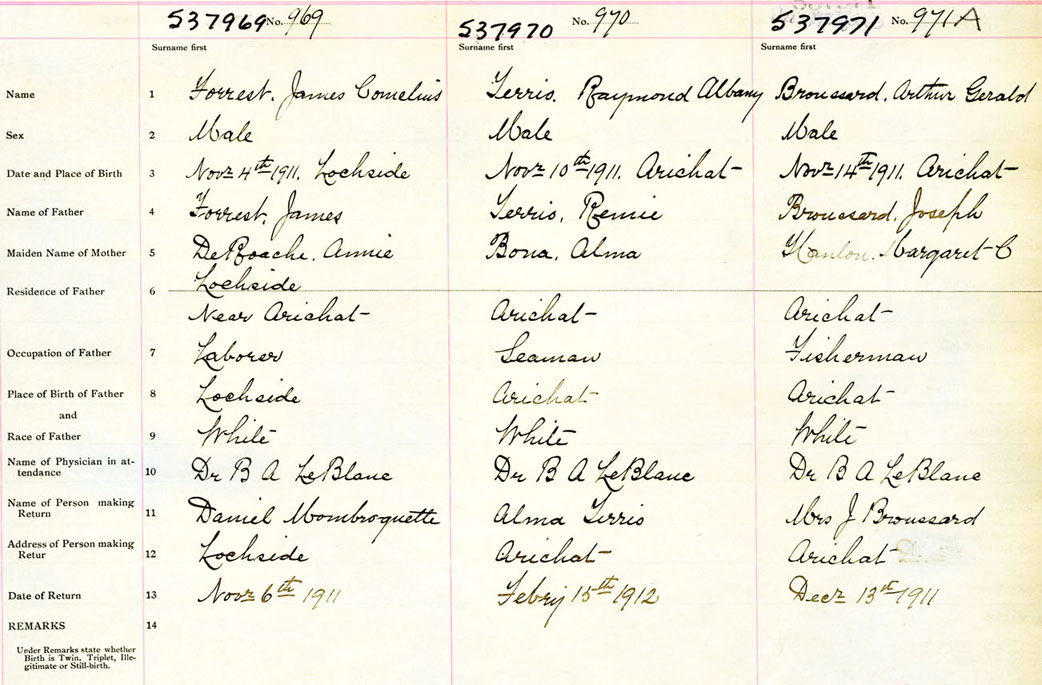 537969 No. 969 537970 No. 970 537971 No. 971A
Surname first Surname first Surname first
Name 1 Forrest, James Cornelius Terris, Raymond Albany Broussard, Arthur Gerald
Sex 2 Male Male Male
Date and Place of Birth 3 Novr 4th 1911, Lochside Novr 10th 1911, Arichat Novr 14th 1911, Arichat
Name of Father 4 Forrest, James Terris, Remie Broussard, Joseph
Maiden Name of Mother 5 DeRoache, Annie Bona, Alma Hanlon, Margaret C
Residence of Father 6 Lochside
Near Arichat Arichat Arichat
Occupation of Father 7 Laborer Seaman Fisherman
Place of Birth of Father 8 Lochside Arichat Arichat
and
Race of Father 9 White White White
Name of Physician in at-
tendance 10 Dr B A LeBlanc Dr B A LeBlanc Dr B A LeBlanc
Name of Person making
Return 11 Daniel Mombroquette Alma Terris Mrs J Broussard
Address of Person making
Retur 12 Lochside Arichat Arichat
Date of Return 13 Novr 6th 1911 Febry 15th 1912 Decr 13th 1911
REMARKS 14
Under Remarks state whether
Birth is Twin, Triplet, Ille-
gitimate or Still-birth.